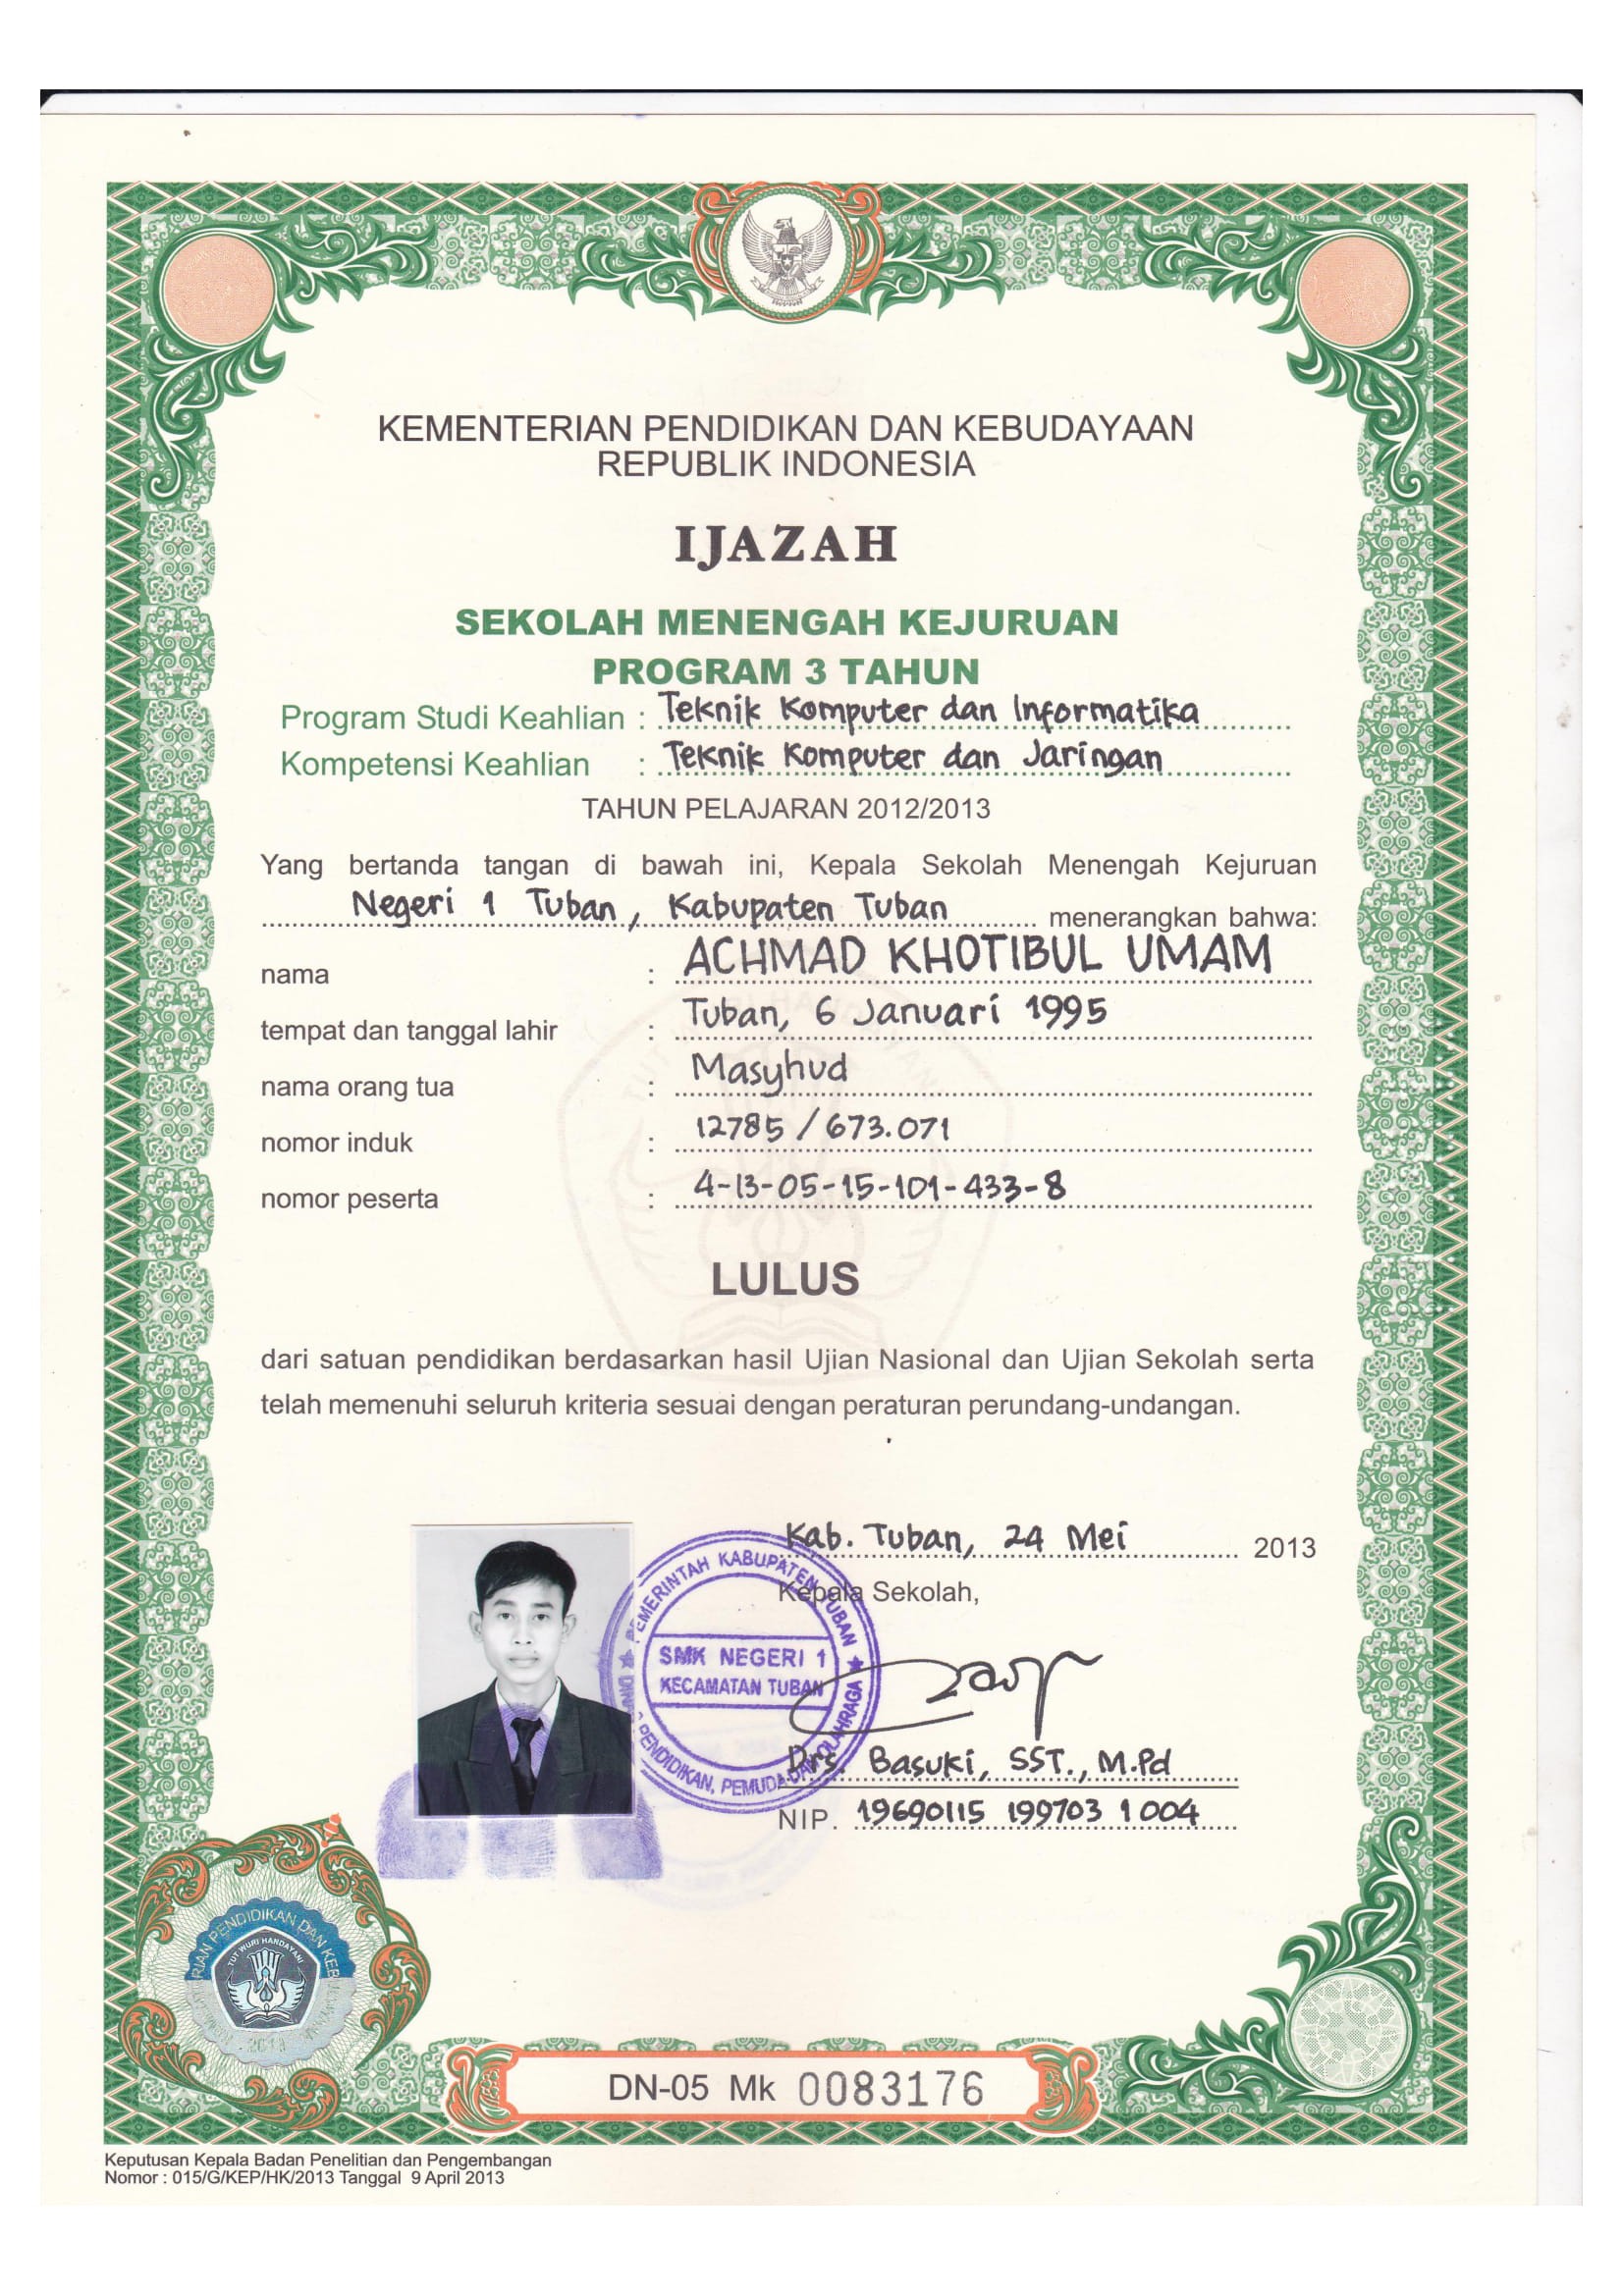 KEMENTERIAN PENDIDIKAN DAN KEBUDAYAAN
REPUBLIK INDONESIA
IJAZAH
SEKOLAH MENENGAH KEJURUAN
PROGRAM 3 TAHUN
Program Studi Keahlian : Teknik Komputer dan Informatika
Kompetensi Keahlian : Teknik Komputer dan Jaringan
TAHUN PELAJARAN 2012/2013
Yang bertanda tangan di bawah ini, Kepala Sekolah Menengah Kejuruan
Negeri 1 Tuban, Kabupaten Tuban menerangkan bahwa:
nama : ACHMAD KHOTIBUL UMAM
tempat dan tanggal lahir : Tuban, 6 Januari 1995
nama orang tua : Masyhud
nomor induk : 12785 / 673.071
nomor peserta : 4-13-05-15-101-433-8
LULUS
dari satuan pendidikan berdasarkan hasil Ujian Nasional dan Ujian Sekolah serta
telah memenuhi seluruh kriteria sesuai dengan peraturan perundang-undangan.
Kab. Tuban, 24 Mei 2013
Kepala Sekolah,
PEMERINTAH KABUPATEN TUBAN
SMK NEGERI 1
KECAMATAN TUBAN
PENDIDIKAN, PEMUDA DAN OLAHRAGA
Drs. Basuki, SST., M.Pd
NIP. 19690115 199703 1 004
PENDIDIKAN DAN
TUT WURI HANDAYANI
2013
DN-05 Mk 0083176
Keputusan Kepala Badan Penelitian dan Pengembangan
Nomor : 015/G/KEP/HK/2013 Tanggal 9 April 2013